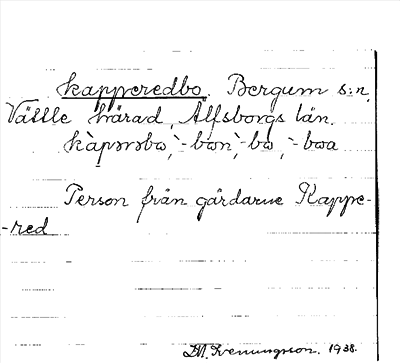 kapperedbo. Bergum s:n,
Vättle härad, Älfsborgs län.
kàpərəbo, -bon, -bo, -boa
Person från gårdarne Kappe-
-red
1938.